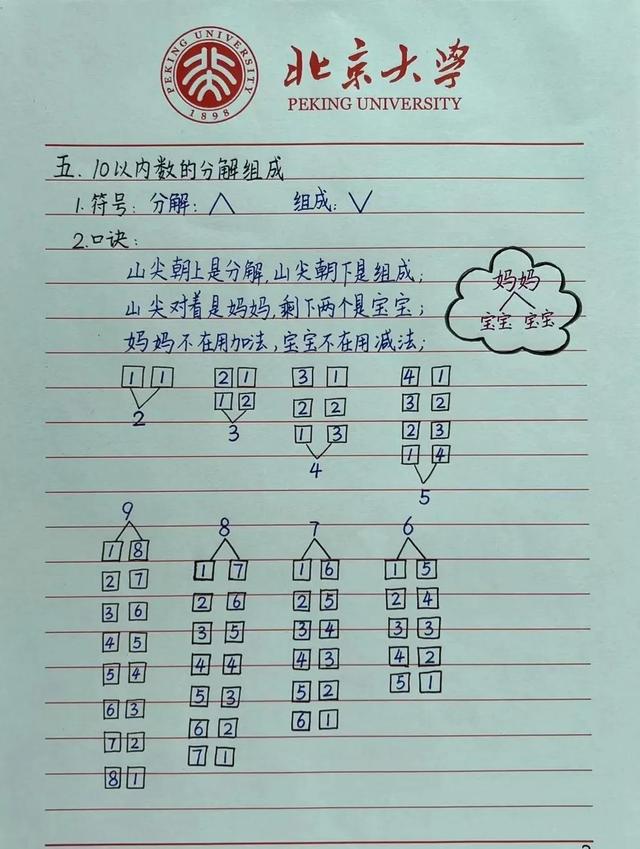 PEKING UNIVERSITY
1898
北京大学
PEKING UNIVERSITY
五. 10以内数的分解组成
1.符号: 分解: ∧ 组成: ∨
2.口诀:
山尖朝上是分解,山尖朝下是组成;
山尖对着是妈妈,剩下两个是宝宝;
妈妈不在用加法,宝宝不在用减法;
妈妈
宝宝 宝宝
1 1 2 1 3 1 4 1
1 2 2 2 3 2
2 3 1 3 2 3
4 1 4
5
9 8 7 6
1 8 1 7 1 6 1 5
2 7 2 6 2 5 2 4
3 6 3 5 3 4 3 3
4 5 4 4 4 3 4 2
5 4 5 3 5 2 5 1
6 3 6 2 6 1
7 2 7 1
8 1